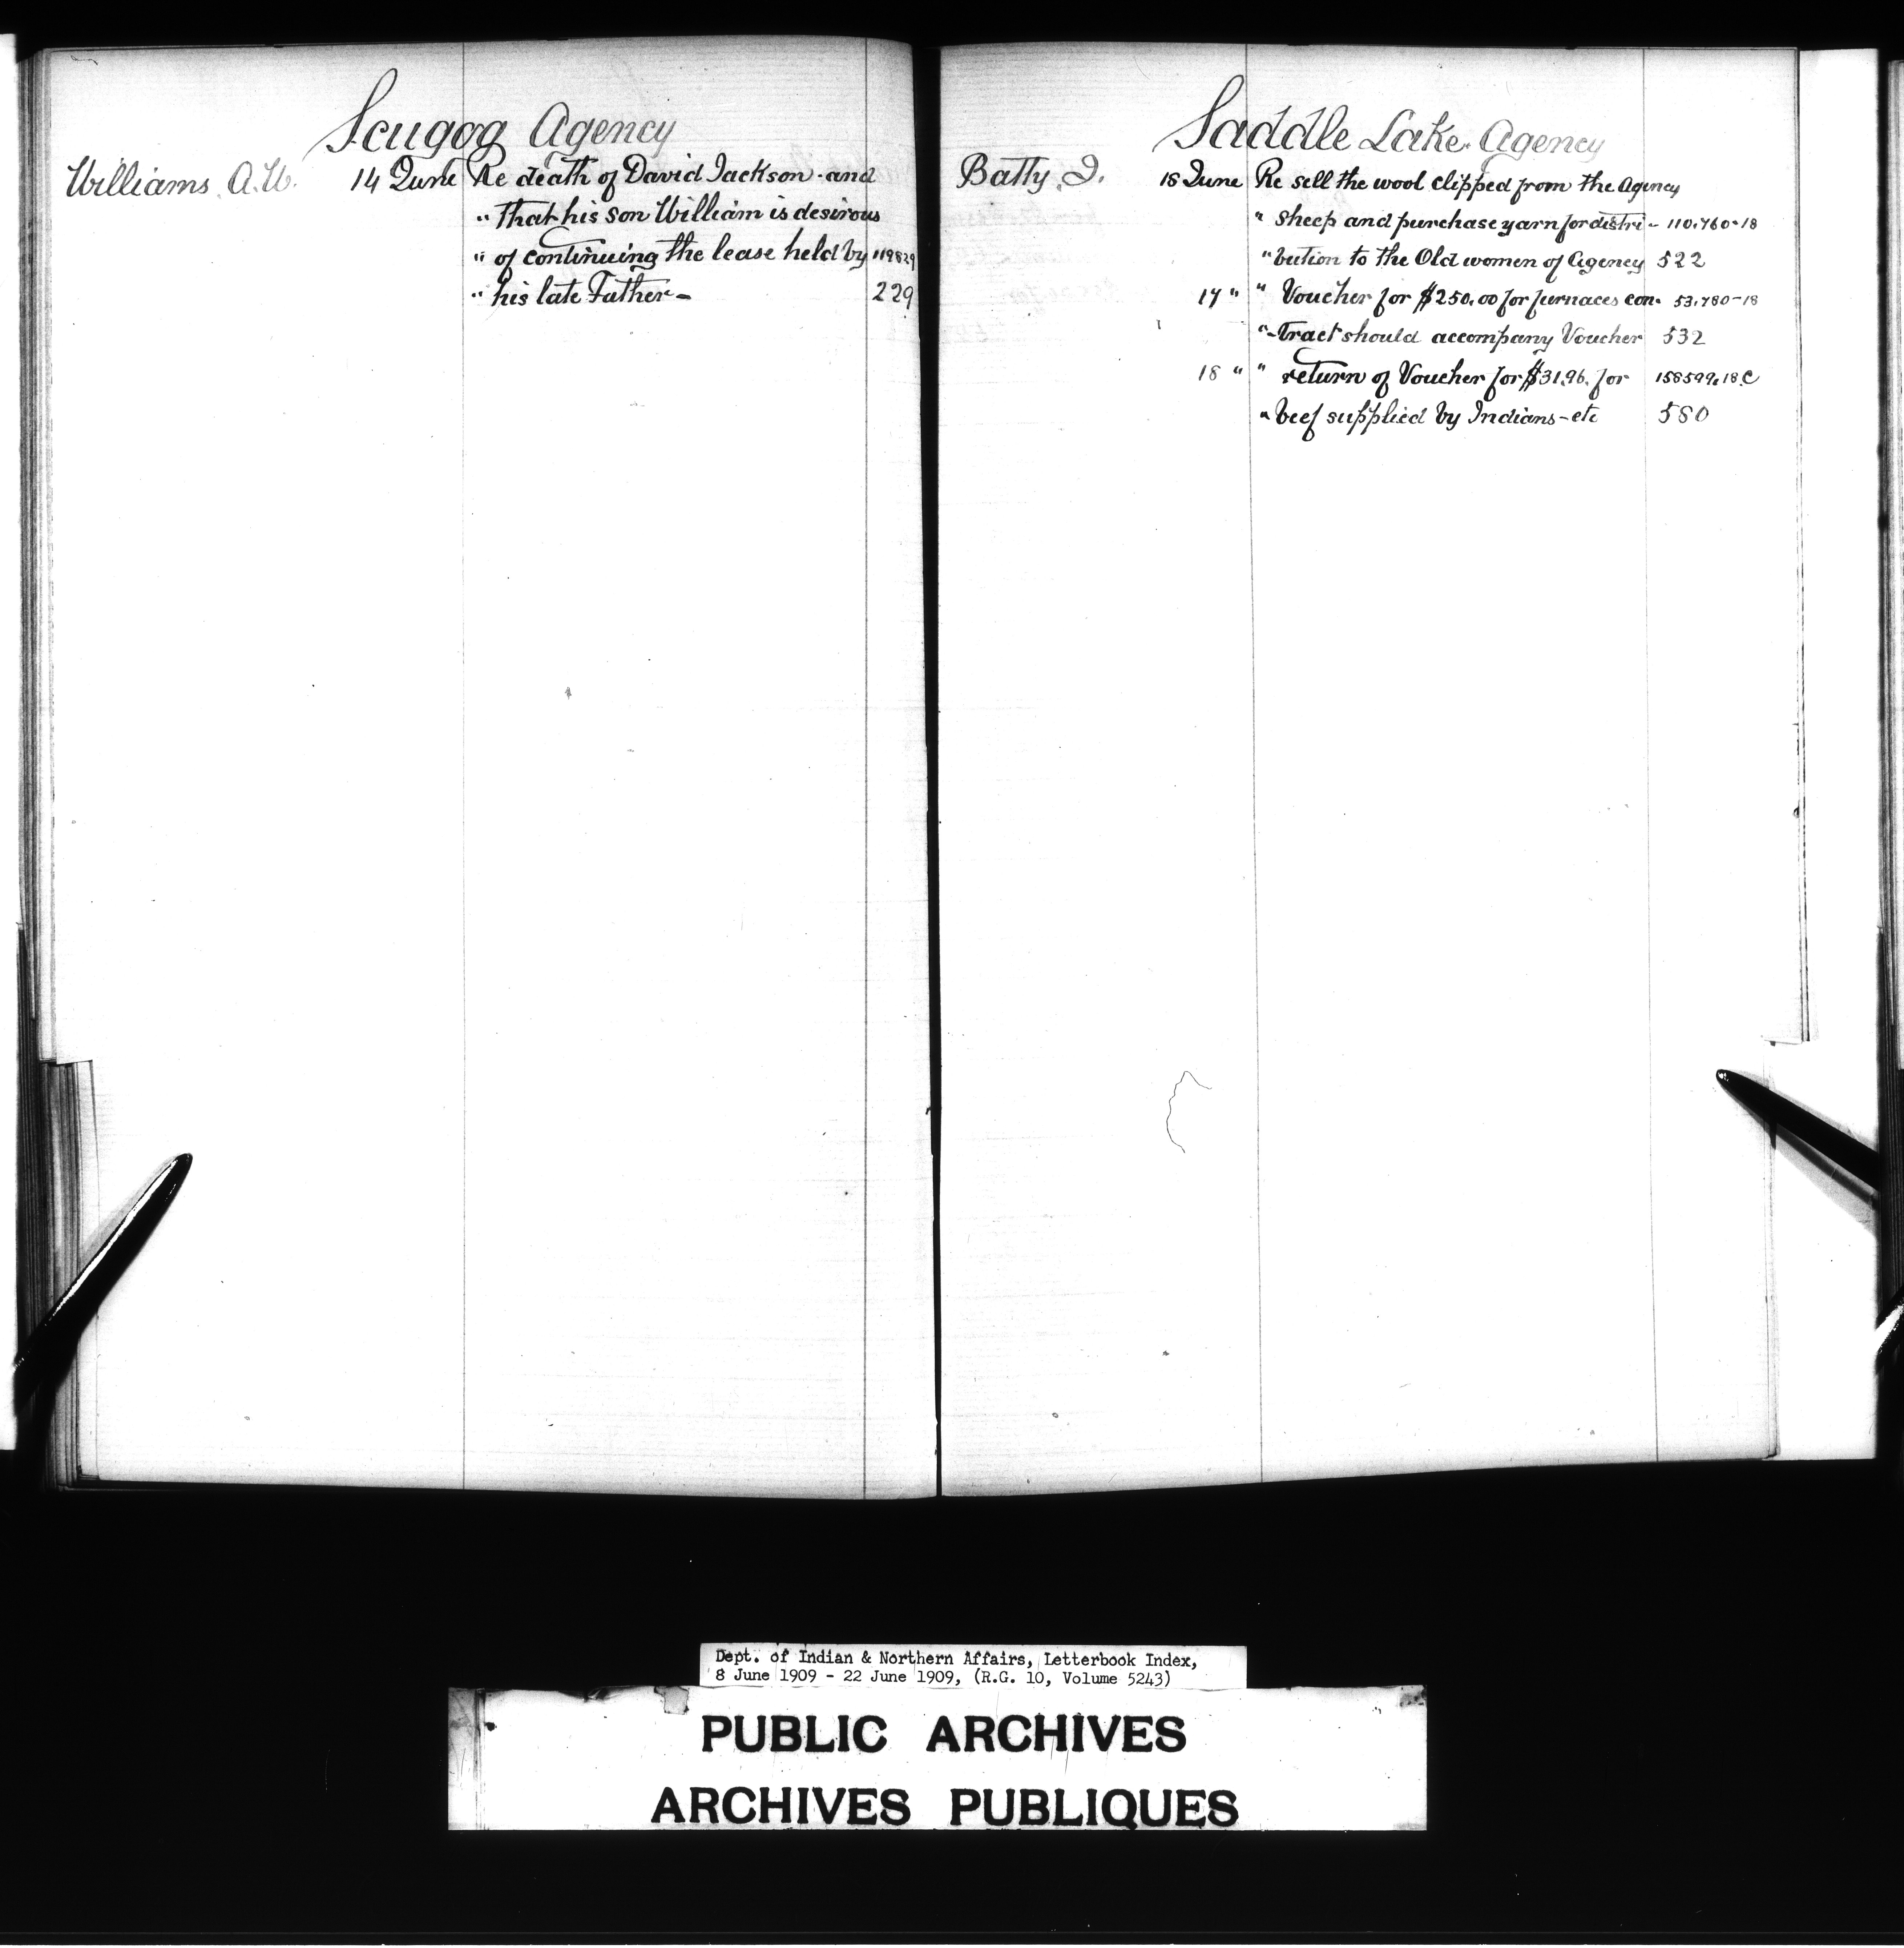 Scugog Agency
Williams A.W. 14 June Re death of David Jackson - and
" That his son William is desirous
" of continuing the lease held by 119829
" his late Father - 229
Saddle Lake Agency
Batty, J. 18 June Re sell the wool clipped from the Agency
" sheep and purchase yarn for distri- 110,760-18
" bution to the Old women of Agency 522
17 " " Voucher for $250.00 for furnaces con- 53,780-18
" -tract should accompany Voucher 532
18 " " return of Voucher for $31.96. for 158599,18.C
" beef supplied by Indians - etc 580
Dept. of Indian & Northern Affairs, Letterbook Index,
8 June 1909 - 22 June 1909, (R.G. 10, Volume 5243)
PUBLIC ARCHIVES
ARCHIVES PUBLIQUES